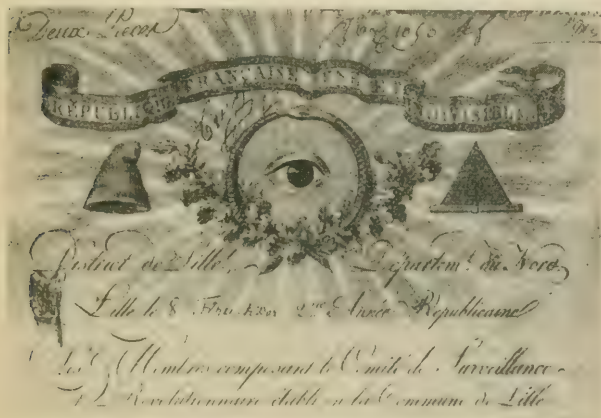 Deux Pieces
RÉPUBLIQUE FRANÇAISE UNE ET INDIVISIBLE
District de Lille. Départem.t du Nord,
Lille le 8 2.me Année Républicaine
Les Membres composant le Comité de Surveillance
Revolutionnaire établi en la Commune de Lille